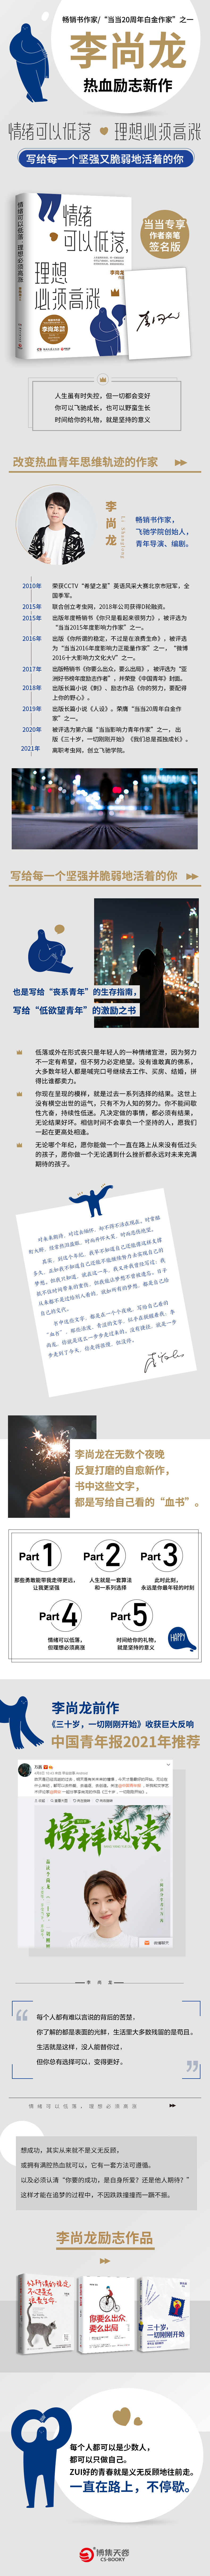 畅销书作家/“当当20周年白金作家”之一
李尚龙
热血励志新作
情绪可以低落 理想必须高涨
写给每一个坚强又脆弱地活着的你
情绪
可以低落，
理想
必须高涨
李尚龙
当当专享
作者亲笔
签名版
人生虽有时失控，但一切都会变好
你可以飞驰成长，也可以野蛮生长
时间给你的礼物，就是坚持的意义
改变热血青年思维轨迹的作家
李尚龙
畅销书作家，
飞驰学院创始人，
青年导演、编剧。
2010年 荣获CCTV“希望之星”英语风采大赛北京市冠军，全
国季军。
2015年 联合创立考虫网，2018年公司获得D轮融资。
2015年 出版年度畅销书《你只是看起来很努力》，被评选为
“当当2015年度影响力作家”之一。
2016年 出版《你所谓的稳定，不过是在浪费生命》，被评选
为“当当2016年度影响力正能量作家”之一，“微博
2016十大影响力文化大V”之一。
2017年 出版畅销书《你要么出众，要么出局》，被评选为“亚
洲好书榜年度励志作者”，并荣登《中国青年》封面。
2018年 出版长篇小说《刺》、励志作品《你的努力，要配得
上你的野心》。
2019年 出版长篇小说《人设》，荣膺“当当20周年白金作
家”之一。
2020年 被评选为第六届“当当影响力青年作家”之一，出
版《三十岁，一切刚刚开始》《我们总是孤独成长》。
2021年 离职考虫网，创立飞驰学院。
写给每一个坚强并脆弱地活着的你
也是写给“丧系青年”的生存指南，
写给“低欲望青年”的激励之书
低落或外在形式丧只是年轻人的一种情绪宣泄，因为努力
不一定有希望，但不努力必定绝望。没有谁敢真的佛系，
大多数年轻人都是喊完口号继续去工作、买房、结婚，拼
得比谁都卖力。
你现在呈现的模样，就是过去一系列选择的结果。这世上
没有横空出世的运气，只有不为人知的努力。你不能间歇
性亢奋，持续性低迷。凡决定做的事情，都必须有结果，
无论结果好坏。相信时间不会辜负一个坚持的人，愿我们
一起在更高处相逢。
无论哪个年纪，愿你能做一个一直在路上从来没有低过头
的孩子，愿你做一个无论遇到什么挫折都永远对未来充满
期待的孩子。
李尚龙在无数个夜晚
反复打磨的自愈新作，
书中这些文字，
都是写给自己看的“血书”。
Part 1
那些勇敢能带我走得更远，
让我更坚强
Part 2
人生就是一套算法
和一系列选择
Part 3
此时此刻，
永远是你最年轻的时刻
Part 4
情绪可以低落，
但理想必须高涨
Part 5
时间给你的礼物，
就是坚持的意义
HAPPY
李尚龙前作
《三十岁，一切刚刚开始》收获巨大反响
中国青年报2021年推荐
榜样阅读
李 尚 龙
每个人都有难以言说的背后的苦楚，
你了解的都是表面的光鲜，生活里大多数残留的是苟且。
生活就是这样，没人能替你过，
但你总有选择可以，变得更好。
情绪可以低落，理想必须高涨
想成功，其实从来就不是义无反顾，
或拥有满腔热血就可以，它有一套方法可遵循。
以及必须认清“你要的成功，是自身所爱？还是他人期待？”
这样才能在追梦的过程中，不因跌跌撞撞而一蹶不振。
李尚龙励志作品
你所谓的稳定，
不过是在浪费生命
你要么出众
要么出局
三十岁，
一切刚刚开始
每个人都可以是少数人，
都可以只做自己。
ZUI好的青春就是义无反顾地往前走。
一直在路上，不停歇。
博集天卷
CS-BOOKY